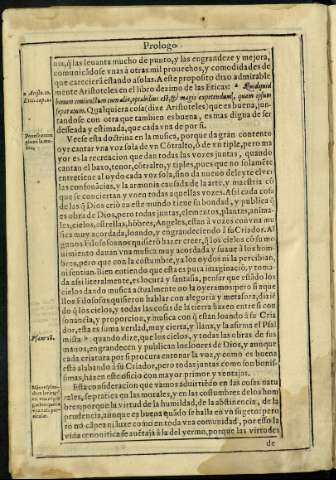 Prologo
nos, q̃ las leuanta mucho de punto, y las engrandeze y mejora,
comunicãdose vnas à otras mil prouechos, y comodidades de
que carecieran estando asolas. A este proposito dixo admirable
mente Aristoteles en el libro dezimo de las Eticas:
bonum coniunctum cum alio,
separatum. Qualquiera cosa (dize Aristoteles) que es buena, jun-
tandose con otra que tambien es buena, es mas digna de ser
desseada y estimada, que cada vna de por si.
Veese esta doctrina en la musica, porque da gran contento
oyr cantar vna voz sola de vn Cõtralto, ò de vn tiple, pero ma
yor es la recreacion que dan todas las vozes juntas, quando
cantan el baxo, tenor, cõtralto, y tiples, pues que no solamẽte
entretiene al oydo cada voz sola, sino da nueuo deleyte el ver
las consonãcias, y la armonia causada de la arte, y maestria cõ
que se conciertan y vnen todas aquellas vozes. Assi cada cosa
de las q̃ Dios criò en este mundo tiene su bondad, y publica q̃
es obra de Dios, pero todas juntas, elementos, plantas, anima-
les, cielos, estrellas, hõbres, Angeles, estan à vozes con vna mu
sica muy acordada, loando, y engrandeciendo à su Criador. Al
gunos Filosofos nos quisierõ hazer creer, q̃ los cielos cõ su mo
uimiento dauan vna musica muy acordada y suaue à los hom-
bres, pero que con la costumbre, ya los oydos ni la percibian,
ni sentian. Bien entiendo que esta es pura imaginaciõ, y toma-
da assi literalmente, es locura y fantasia, pensar que estãdo los
cielos dando musica actualmente no la oyeramos: pero si aque
llos Filosofos quisieron hablar con alegoria y metafora, dãdo
q̃ los cielos, y todas las cosas de la tierra hazen entre si con
sonancia, y proporcion, y musica con q̃ estan loando à su Cria
dor, esta es suma verdad, muy cierta, y llana, y la afirma el Psal
mista: quando dize, que los cielos, y todas las obras de sus
manos, engrandecen y publican los loores de Dios, y aunque
cada criatura por si procura entonar la voz, y como es bueno
està alabando à su Criador, pero todas juntas como son bonis-
simas, hazen este oficio con mayor primor y ventajas.
Esta consideracion que vamos aduirtiẽdo en las cosas natu
rales, se pratica en las morales, y en las costumbres de los hom
bres, porque la virtud de la humildad, de la abstinencia, de la
prudencia, aunque es bueno quãdo se halla en vn sugeto: pero
no campea ni luze como en toda vna comunidad, por esso la
vida cenobitica se auẽtaja à la del yermo, porque las virtudes
de